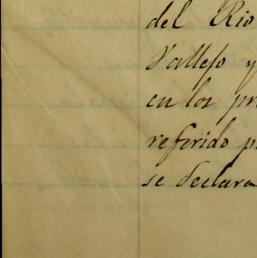 del Rio
Vallejo y
en los pr
referido p
se declara